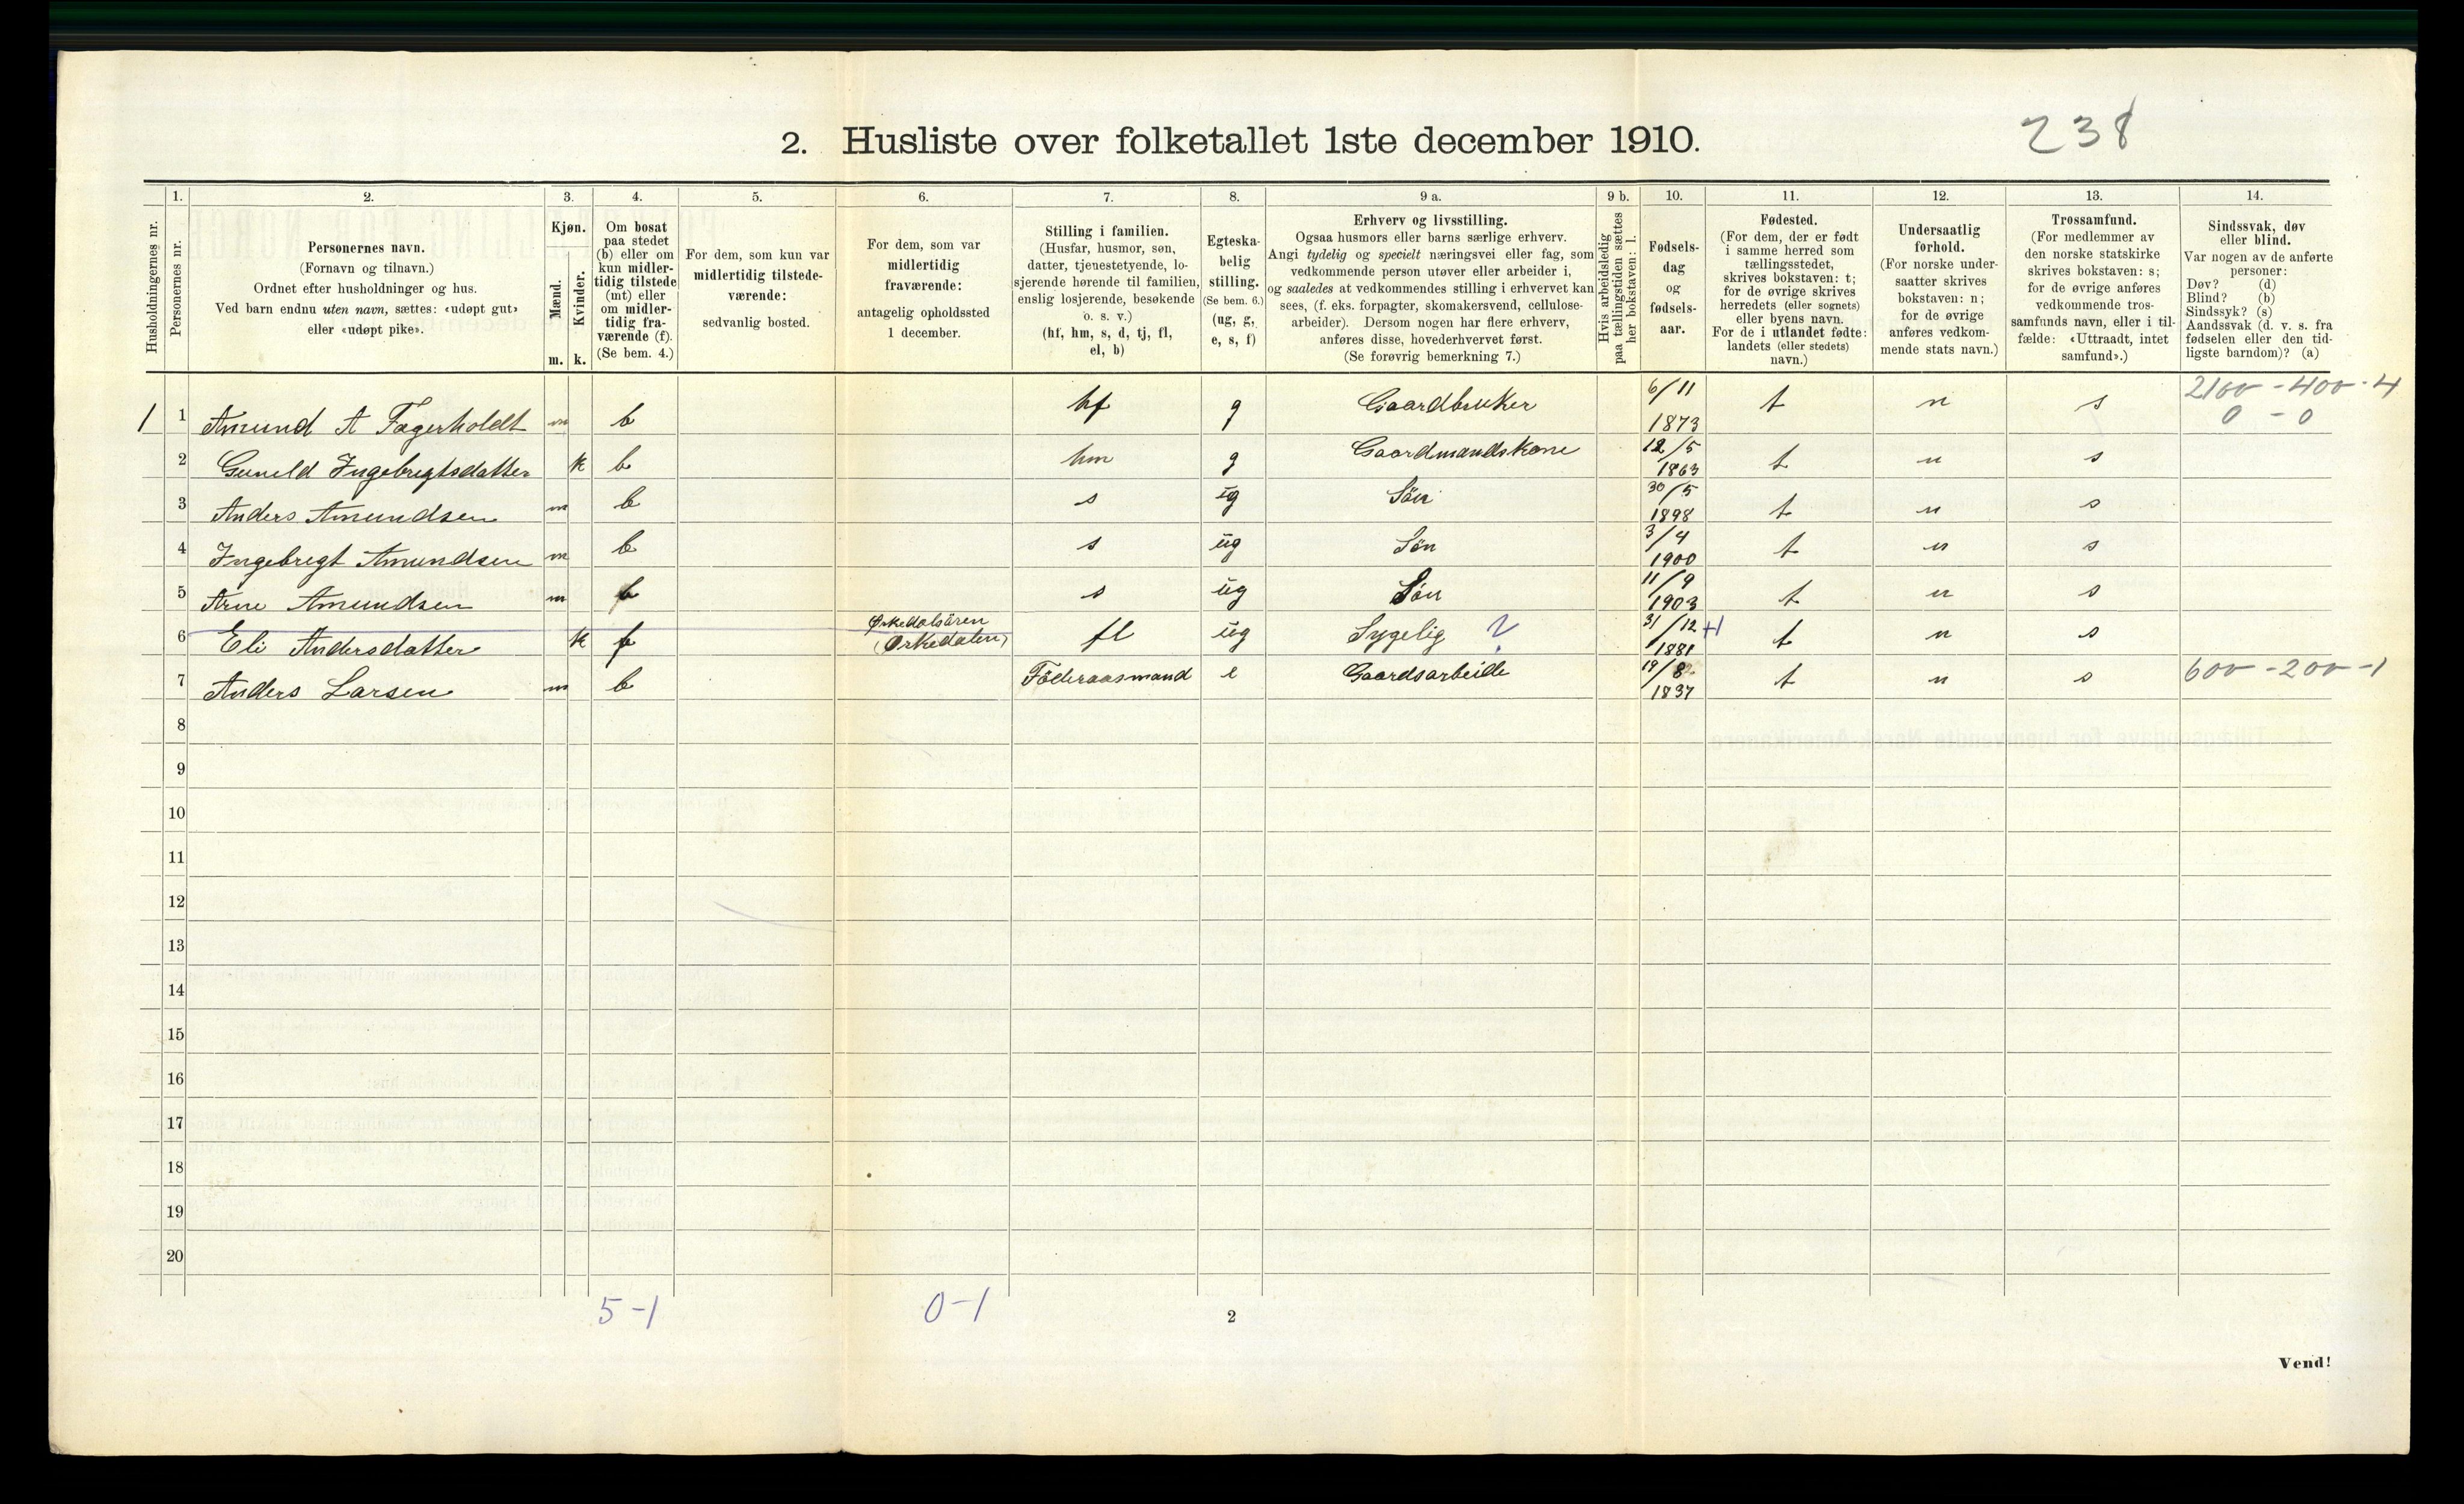 238
2. Husliste over folketallet 1ste december 1910.
Husholdningernes nr.
1.
Personernes nr.
2.
Personernes navn.
(Fornavn og tilnavn.)
Ordnet efter husholdninger og hus.
Ved barn endnu uten navn, sættes: «udøpt gut»
eller «udøpt pike».
3.
Kjøn.
Mænd.
Kvinder.
m. k.
4.
Om bosat
paa stedet
(b) eller om
kun midler-
tidig tilstede
(mt) eller
om midler-
tidig fra-
værende (f).
(Se bem. 4.)
5.
For dem, som kun var
midlertidig tilstede-
værende:
sedvanlig bosted.
6.
For dem, som var
midlertidig
fraværende:
antagelig opholdssted
1 december.
7.
Stilling i familien.
(Husfar, husmor, søn,
datter, tjenestetyende, lo-
sjerende hørende til familien,
enslig losjerende, besøkende
o. s. v.)
(hf, hm, s, d, tj, fl,
el, b)
8.
Egteska-
belig
stilling.
(Se bem. 6.)
(ug, g,
e, s, f)
9 a.
Erhverv og livsstilling.
Ogsaa husmors eller barns særlige erhverv.
Angi tydelig og specielt næringsvei eller fag, som
vedkommende person utøver eller arbeider i,
og saaledes at vedkommendes stilling i erhvervet kan
sees, (f. eks. forpagter, skomakersvend, cellulose-
arbeider). Dersom nogen har flere erhverv,
anføres disse, hovederhvervet først.
(Se forøvrig bemerkning 7.)
9 b.
Hvis arbeidsledig
paa tællingstiden sættes
her bokstaven: l.
10.
Fødsels-
dag
og
fødsels-
aar.
11.
Fødested.
(For dem, der er født
i samme herred som
tællingsstedet,
skrives bokstaven: t;
for de øvrige skrives
herredets (eller sognets)
eller byens navn.
For de i utlandet fødte:
landets (eller stedets)
navn.)
12.
Undersaatlig
forhold.
(For norske under-
saatter skrives
bokstaven: n;
for de øvrige
anføres vedkom-
mende stats navn.)
13.
Trossamfund.
(For medlemmer av
den norske statskirke
skrives bokstaven: s;
for de øvrige anføres
vedkommende tros-
samfunds navn, eller i til-
fælde: «Uttraadt, intet
samfund».)
14.
Sindssvak, døv
eller blind.
Var nogen av de anførte
personer:
Døv? (d)
Blind? (b)
Sindssyk? (s)
Aandssvak (d. v. s. fra
fødselen eller den tid-
ligste barndom)? (a)
1 1 Amund A Fagerholdt m b hf g Gaardbruker 6/11 1873 t n s 2100 - 400 - 4
0 - 0
2 Guneld Ingebregtsdatter k b hm g Gaardmandskone 12/5 1863 t n s
3 Anders Amundsen m b s ug Søn 30/5 1898 t n s
4 Ingebregt Amundsen m b s ug Søn 3/4 1900 t n s
5 Arne Amundsen m b s ug Søn 11/9 1903 t n s
6 Eli Andersdatter k f Ørkedalsören (Ørkedalen) fl ug Sygelig ? 31/12 1881 t n s
7 Anders Larsen m b Föderaasmand e Gaardsarbeide 19/8 1837 t n s 600 - 200 - 1
8
9
10
11
12
13
14
15
16
17
18
19
20
5-1 0-1
2
Vend!